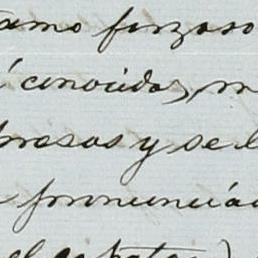 tamo forzoso
conocidas, m
prosas y se l
pronunciá
el